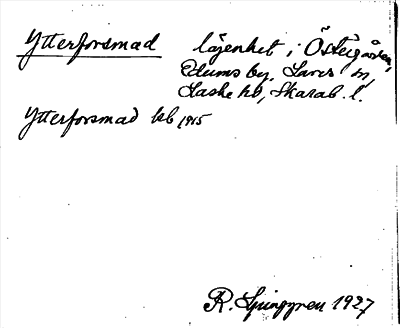 Ytterforsmad lägenhet i Östergården,
Edums by, Larvs sn,
Laske hd, Skarab. l.
Ytterforsmad kb 1915
R. Ljunggren 1927